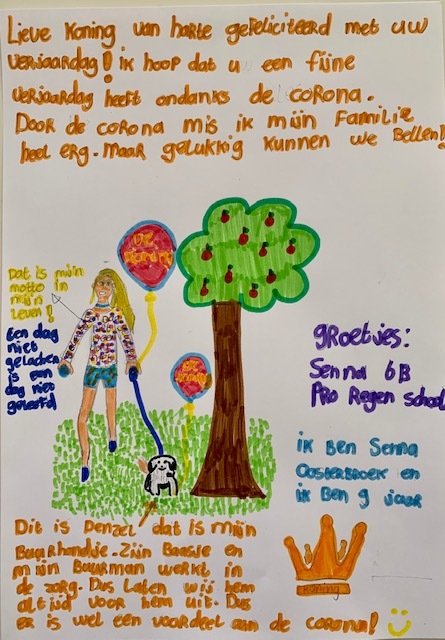 Lieve Koning van harte gefeliciteerd met uw
verjaardag! ik hoop dat u een fijne
verjaardag heeft ondanks de corona.
Door de corona mis ik mijn Familie
heel erg. Maar gelukkig kunnen we Bellen!
De
Koning
Dat is mijn
motto in
mijn
leven!
Een dag
niet
gelachen
is een
dag niet
geleefd
De
Koning
groetjes:
Senna 6B
Pro Regen school
ik Ben Senna
Oosterbroek en
ik Ben 9 jaar
Koning
Dit is Denzel dat is mijn
Buurhondje. Zijn Baasje en
mijn Buurman werkt in
de zorg. Dus Laten wij hem
altijd voor hem uit. Dus
er is wel een voordeel aan de corona!